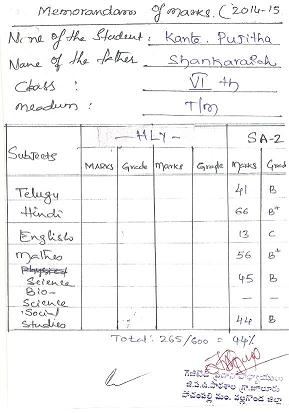 Memorandam of marks. (2014-15
Name of the Student: Kanto. Pujitha
Name of the father Shankaraiah
Class: VI th
meadum: T/m
-HLY- SA-2
Subjects MARKS Grade Marks Grade Marks Grad
Telugu 41 B
Hindi 66 B+
English 13 C
Maths 56 B+
Physical
Science 45 B
Bio-
Science — —
Social
Studies 44 B
Total: 265/600 = 44%
జి.ప.ఉ.పాఠశాల గ్రా.జాలూరు
పోచంపల్లి మం. నల్లగొండ జిల్లా